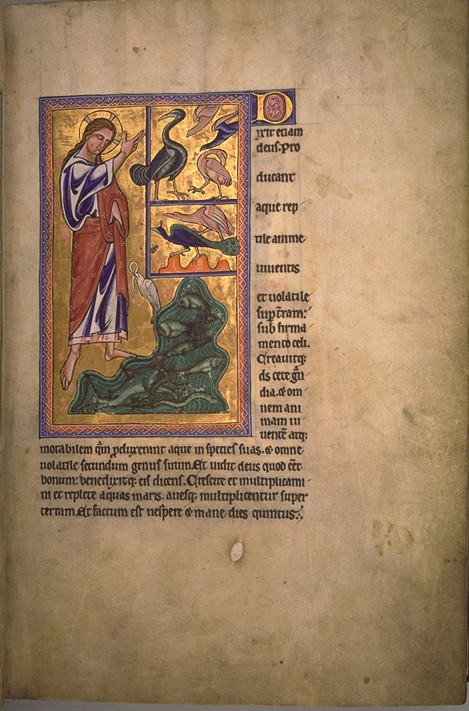 D
ixit etiam
deus. Pro
ducant
aque rep
tile anime
uiuentis
et uolatile
sup tram:
sub firma
mento celi.
Creauitq;
ds cete gñ
dia. & om
nem ani
mam ui
uentē atq;
motabilem qm pduxerant aque in species suas. & omne
uolatile secundum genus suum. Et uidit deus quod eēt
bonum: benedixitq; eis dicens. Crescite et multiplicami
ni et replete aquas maris. auesq; multiplicentur super
terram. Et factum est uespere & mane dies quintus.